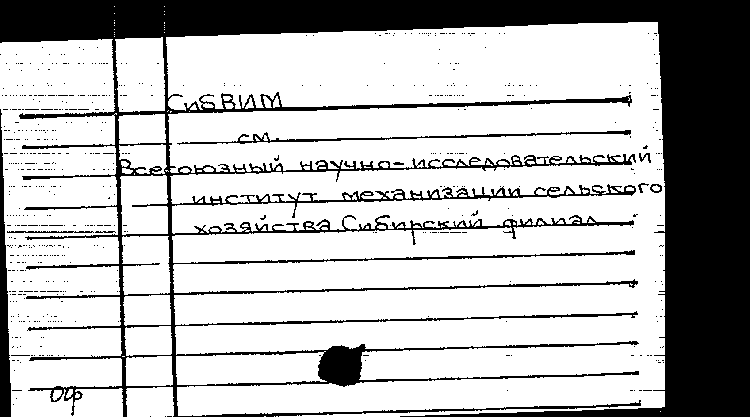 СибВИМ
см.
Всесоюзный научно-исследовательский
институт механизации сельского
хозяйства. Сибирский филиал
ОФ